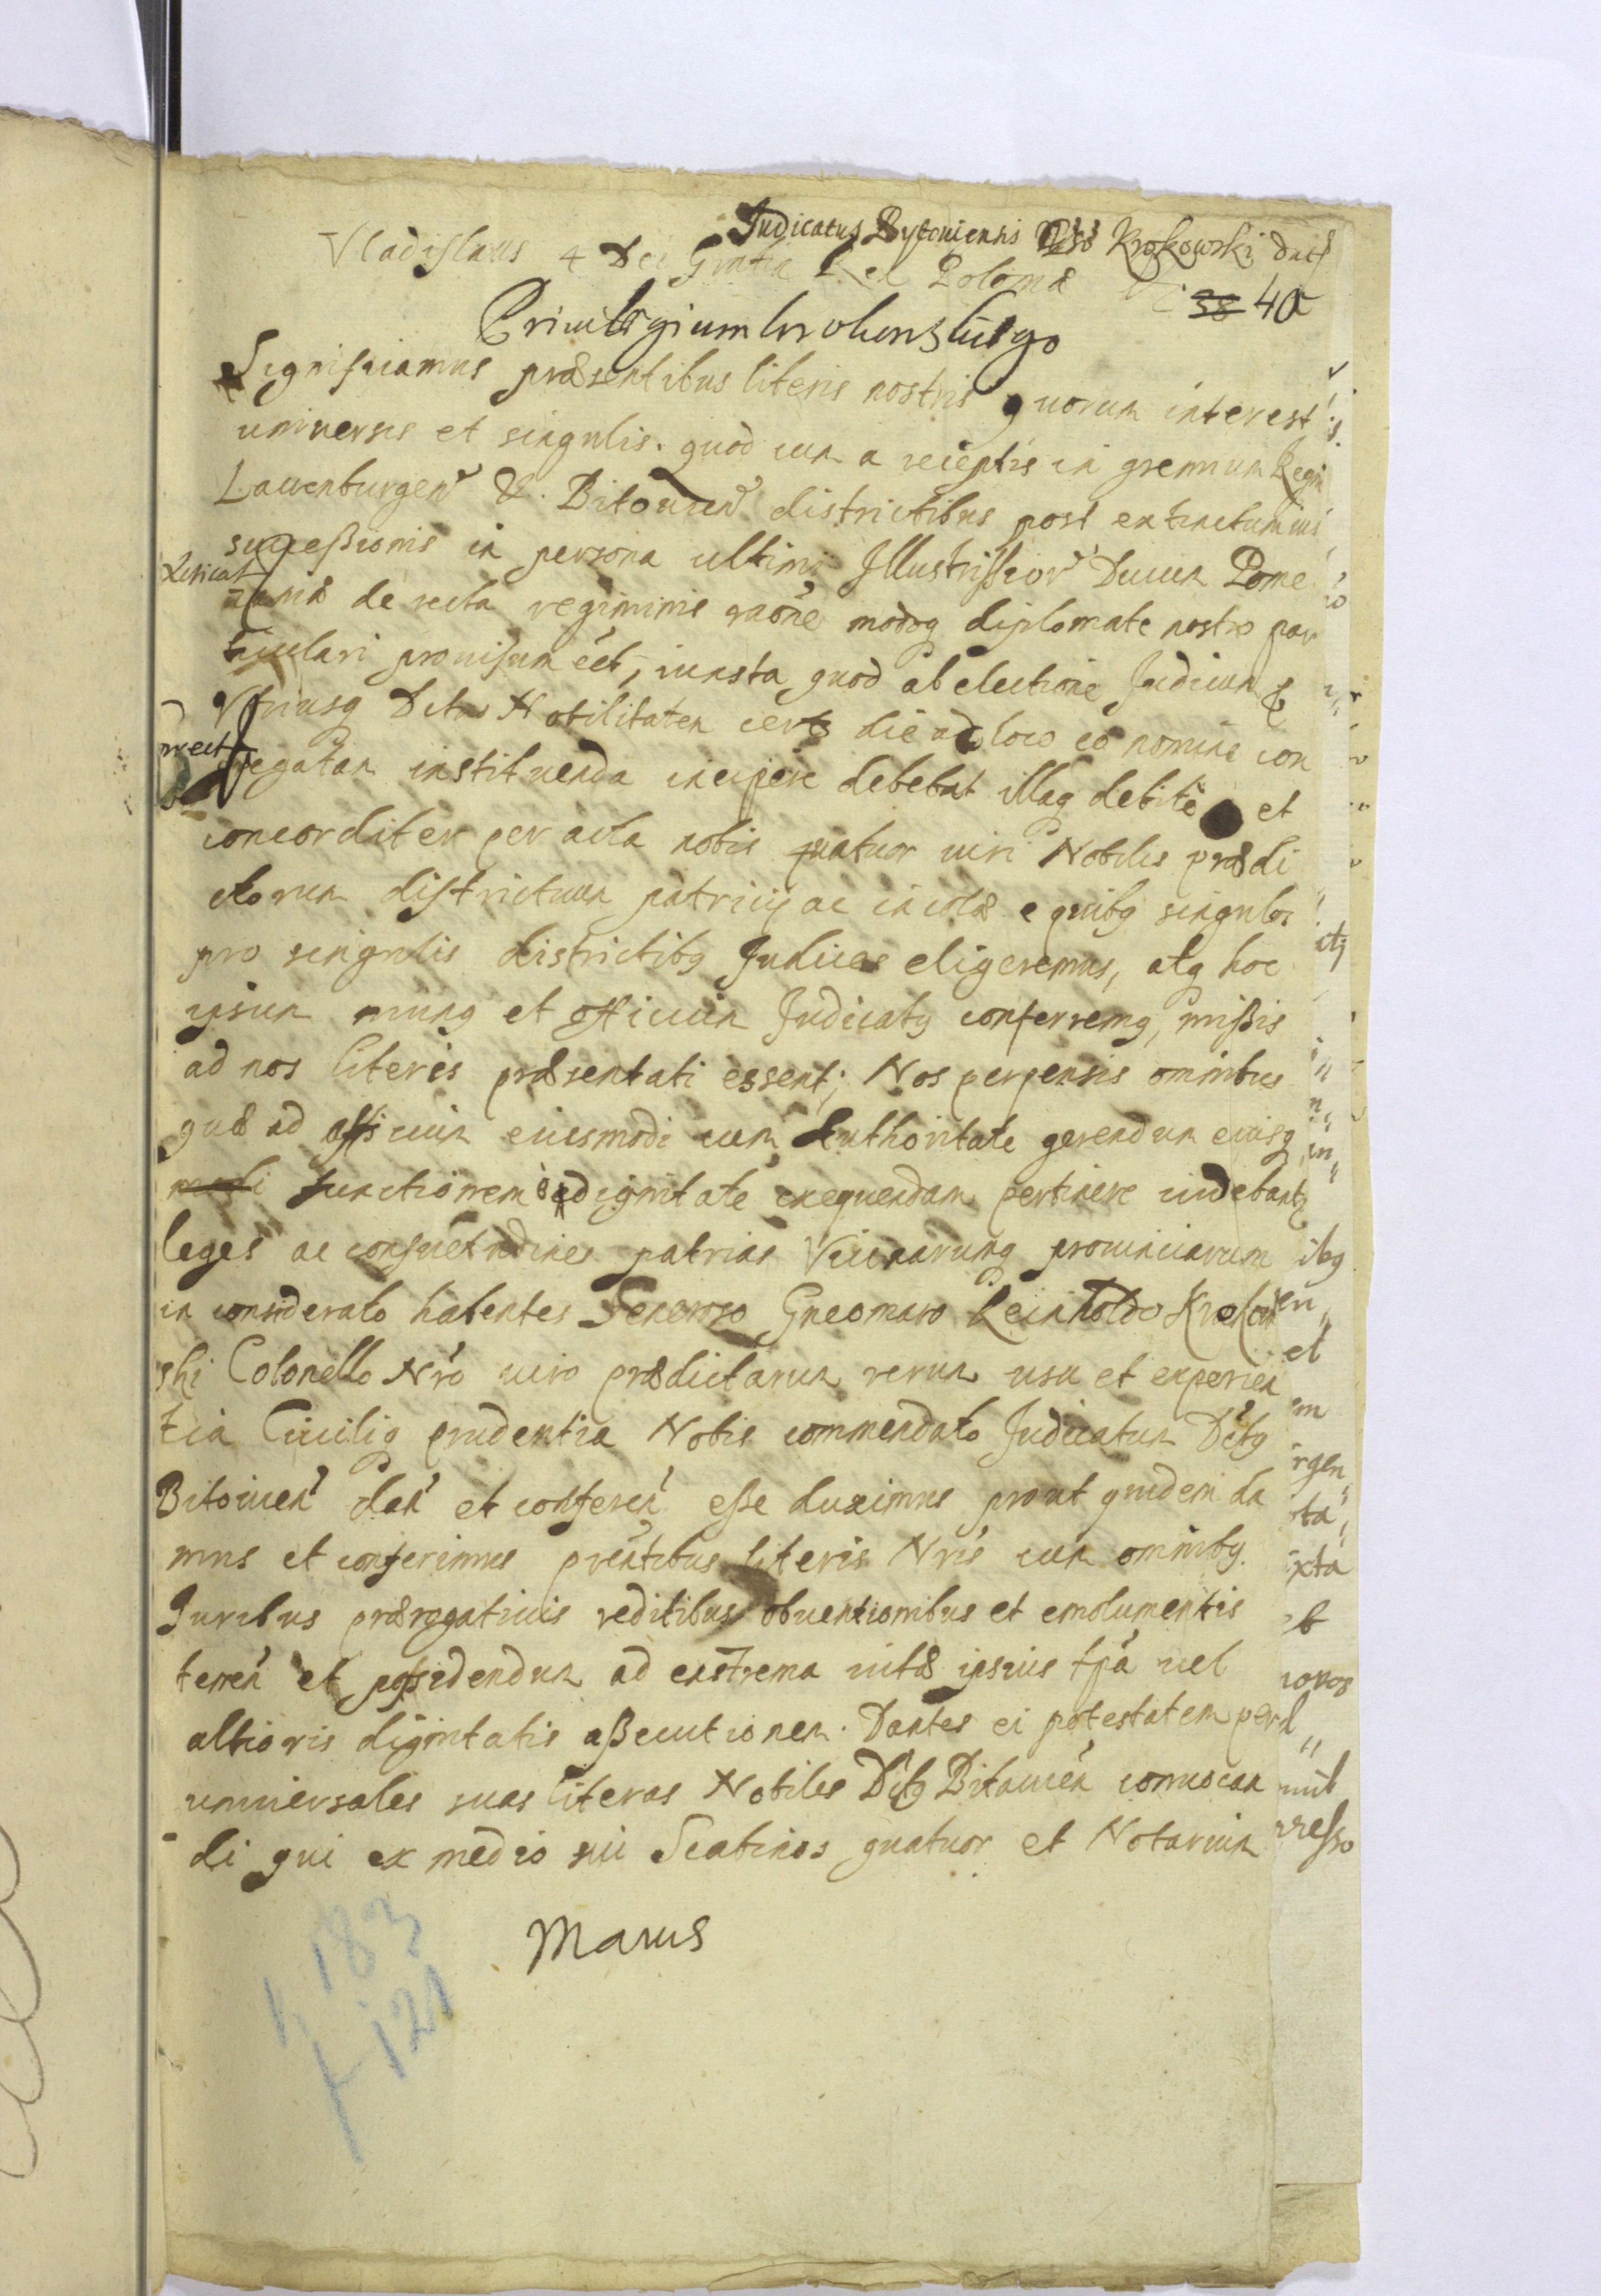 Judicatus Bytoviensis Gnso Krokowski datꝰ
Vladislaus 4 Dei Gratia Rex Polonæ
38 40
Privilegium
Significamus præsentibus literis nostris quorum interest
universis et singulis. quod cum a receptis in gremium Regni
Lauenburgen̄ & Bitovien̄ districtibus post extinctum ius
successionis in persona ultimi Illustrissior̄ Ducum Pome
raniæ de recta regiminis raōne modoq diplomate nostro par
ticulari provisum ēēt, iuxta quod ab electione Judicum &
Utriusq Dctus Nobilitatem certo die ac loco eo nomine con
gregatam instituenda incipere debebat illaq debite et
concorditer peracta nobis quatuor viri Nobiles prædi
ctorum districtuum patricij ac incolæ e quibꝰ singulos
pro singulis districtibꝰ Judices eligeremus, atq hoc
ipsum munꝰ et officium Judicatꝰ conferremꝰ, missis
ad nos literis præsentati essent; Nos perpensis omnibus
quæ ad officium eiusmodi cum Authoritate gerendum eiusq
modi functionem dignitate exequendam pertinere videbantꝰ
leges ac consuetudines patrias Vicinarumq provinciarum
in considerato habentes Generoso Gneomaro Reinholdo Krokow
ski Colonello Nr̄o viro prædictarum rerum usu et experien
tia Civiliq prudentia Nobis commendato Judicatum Dctꝰ
Bitovien̄ dan̄ et conferen̄ esse duximus prout quidem da
mus et conferimus prēntibus literis Nr̄is cum omnibꝰ
Juribus prærogativis reditibus obventionibus et emolumentis
tenen̄ et possidendum ad extrema vitæ ipsius tpā vel
altioris dignitatis assecutionem. Dantes ei potestatem per
universales suas literas Nobiles Dctꝰ Bitavien̄ convocan
di qui ex medio sui Scabinos quatuor et Notarium
Manus
183
121